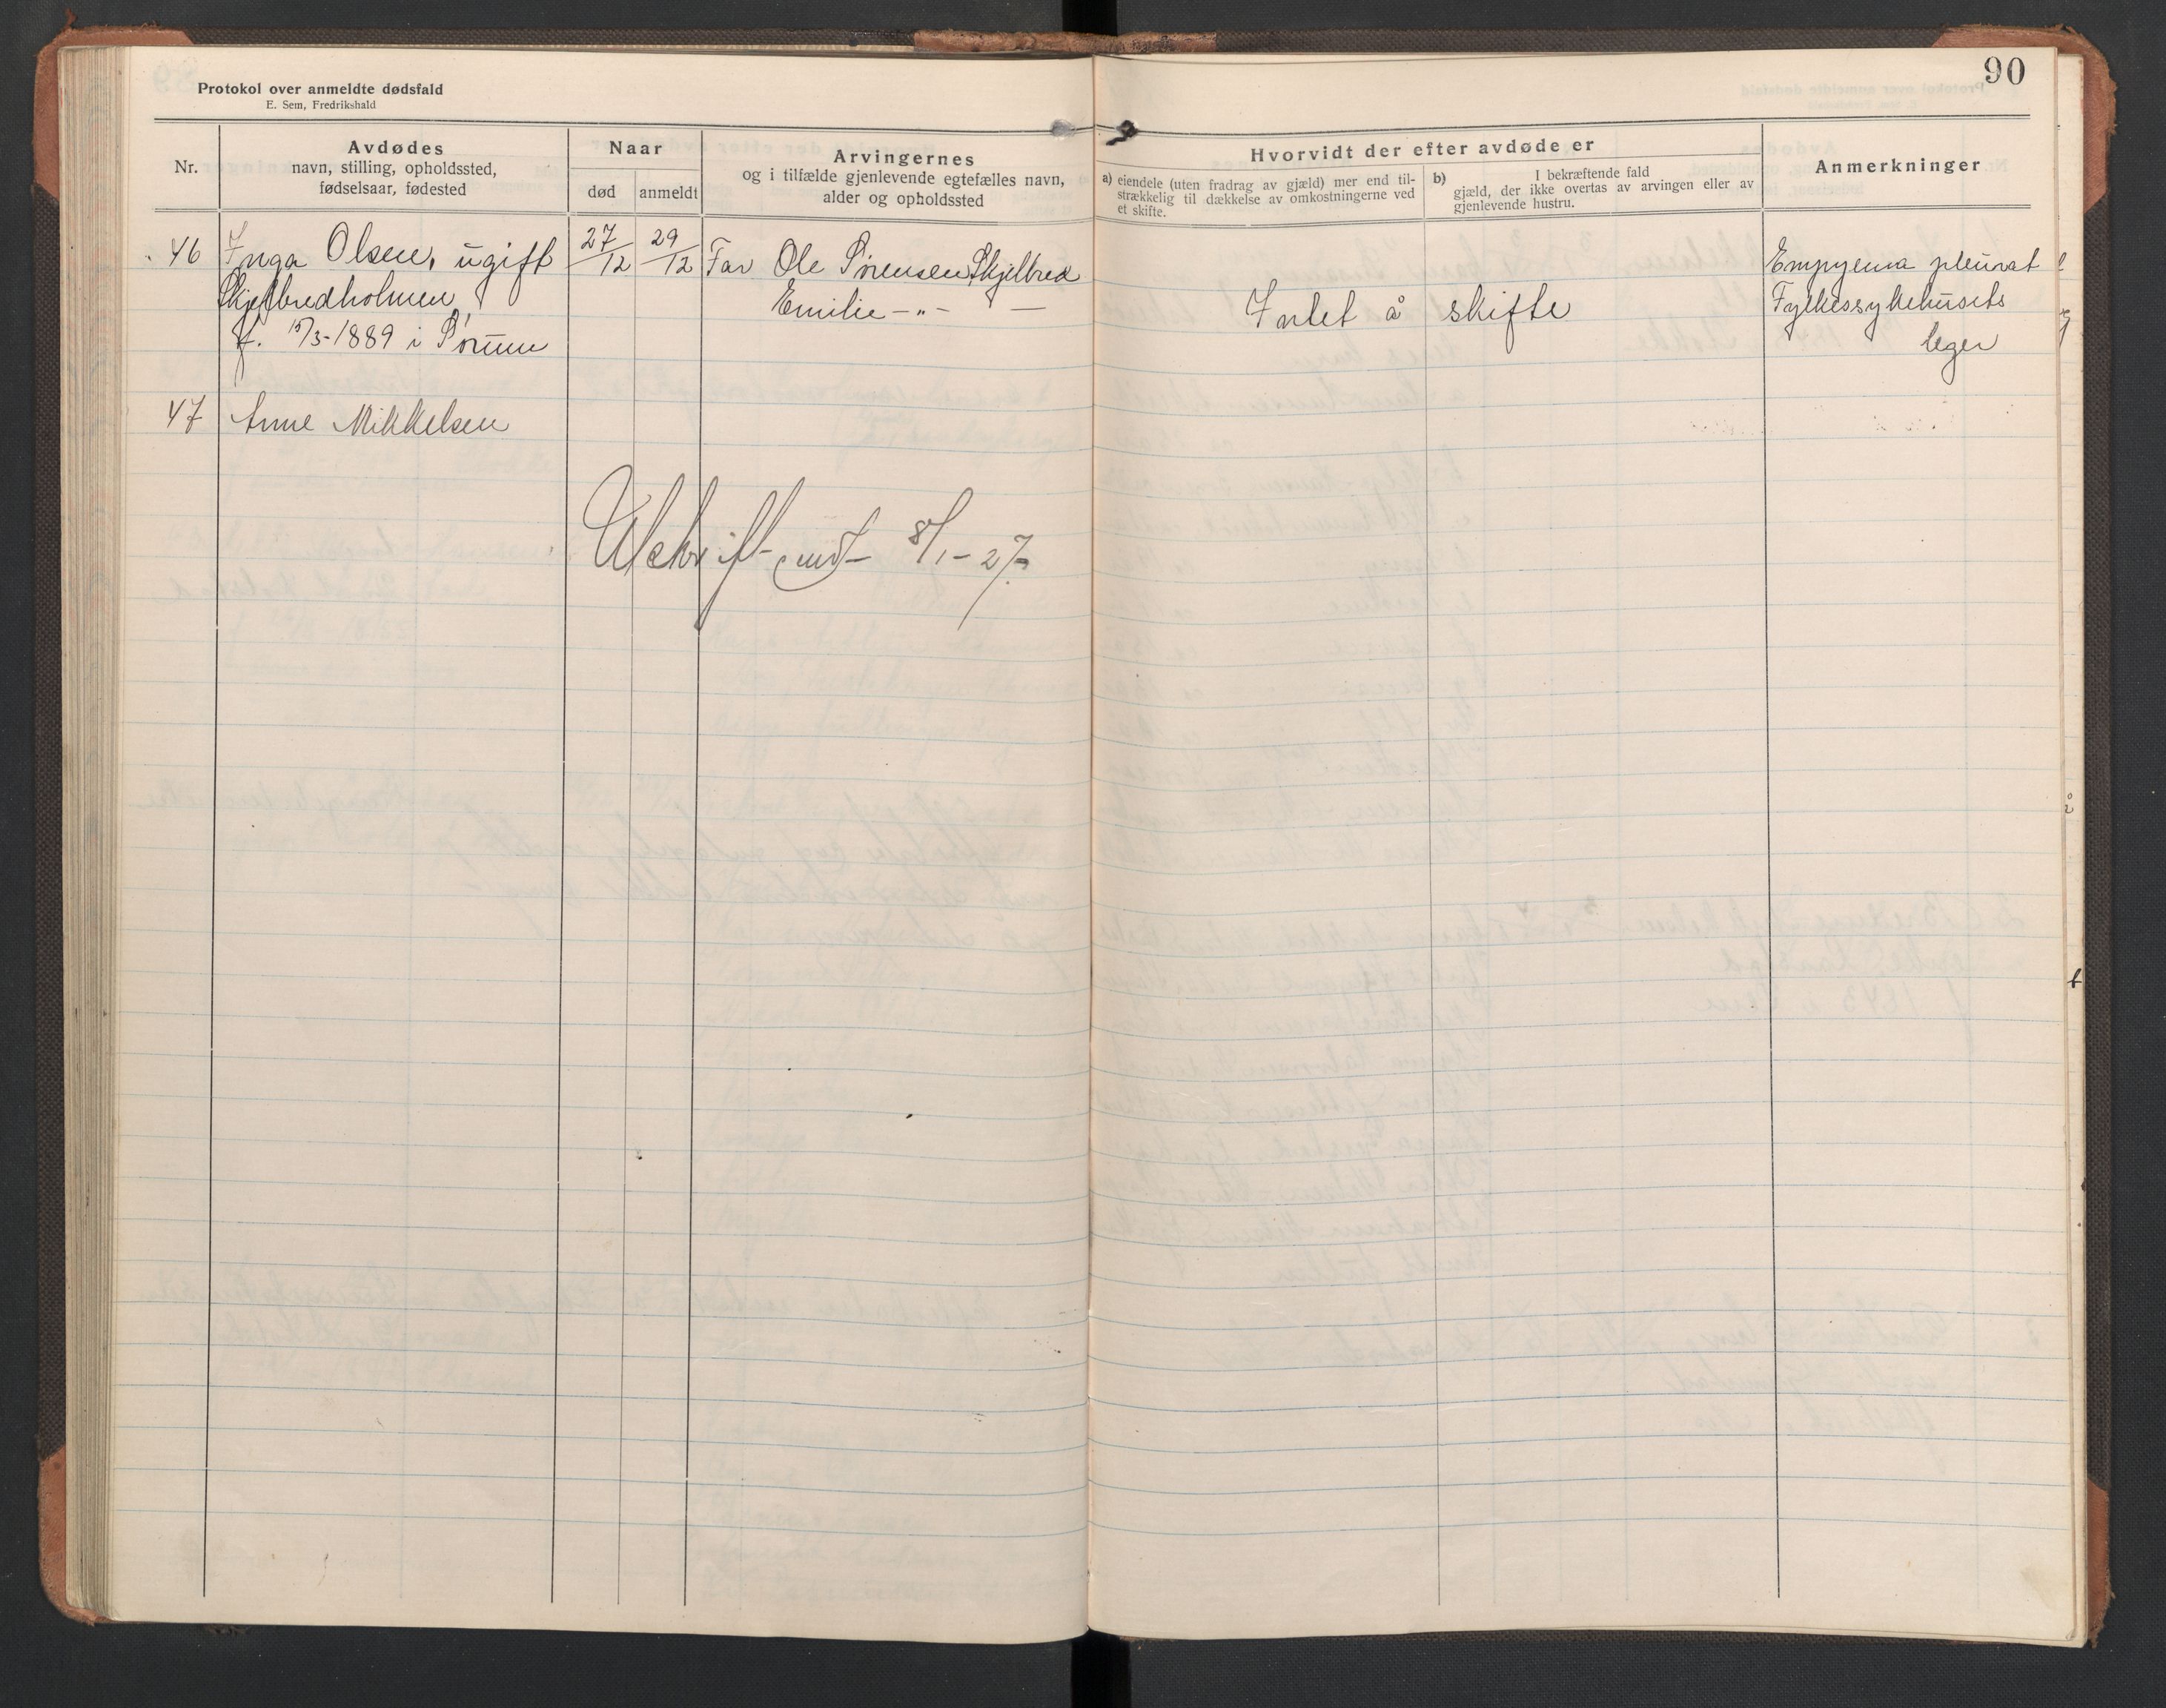 90
Protokol over anmeldte dødsfald
E. Sem, Fredrikshald
Nr.
Avdødes
navn, stilling, opholdssted,
fødselsaar, fødested
Naar
død
anmeldt
Arvingernes
og i tilfælde gjenlevende egtefælles navn,
alder og opholdssted
Hvorvidt der efter avdøde er
a) eiendele (uten fradrag av gjæld) mer end til-
strækkelig til dækkelse av omkostningerne ved
et skifte.
b) I bekræftende fald
gjæld, der ikke overtas av arvingen eller av
gjenlevende hustru.
Anmerkninger
46 Inga Olsen, ugift 27/12 29/12 Far Ole Sørensen Skjelbred
Skjelbredholmen Emilie -„- —
f. 15/3-1889 i Sørum
Intet å skifte
Empyema pleurat
Fylkessykehusets
leger
47 Anne Mikkelsen
Utskrift sendt 8/1-27.